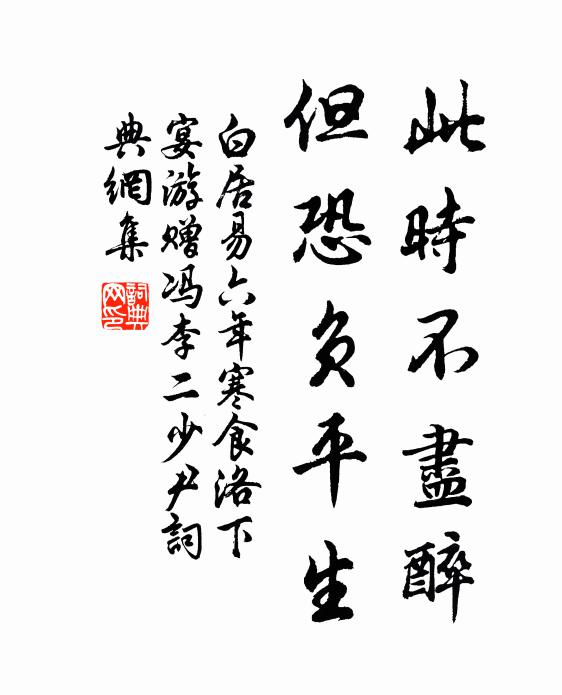 此時不盡醉
但恐負平生
白居易六年寒食洛下
宴游赠冯李二少尹詞
典網集
詞典网印